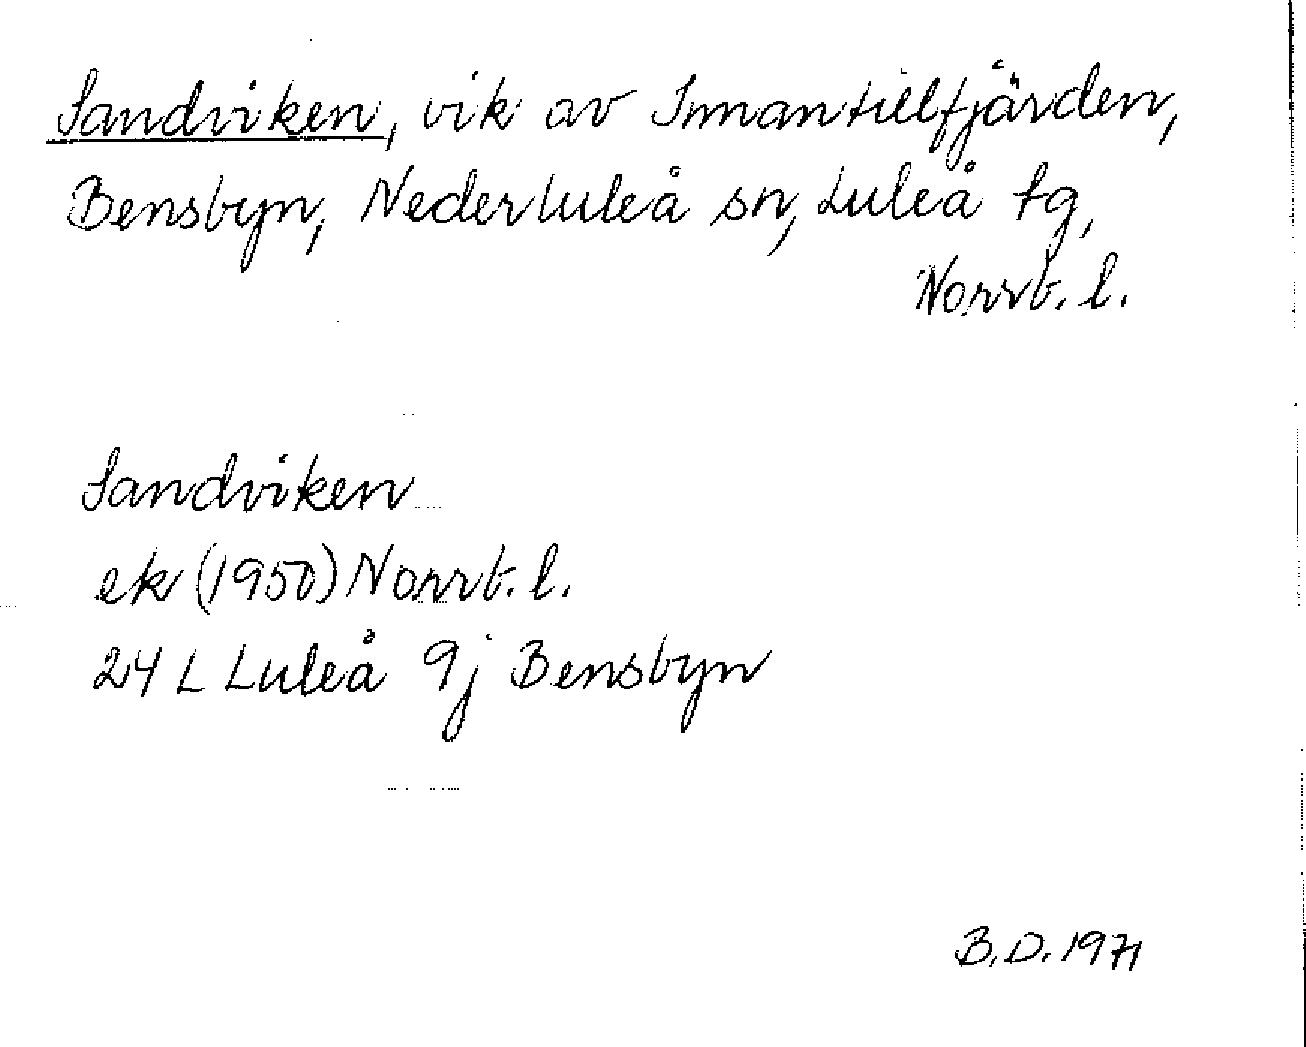 Sandviken, vik av Innantillfjärden,
Bensbyn, Nederluleå sn, Luleå tg,
Norrb. l.
Sandviken
ek (1950) Norrb. l.
24 L Luleå 9j Bensbyn
B.D. 1971